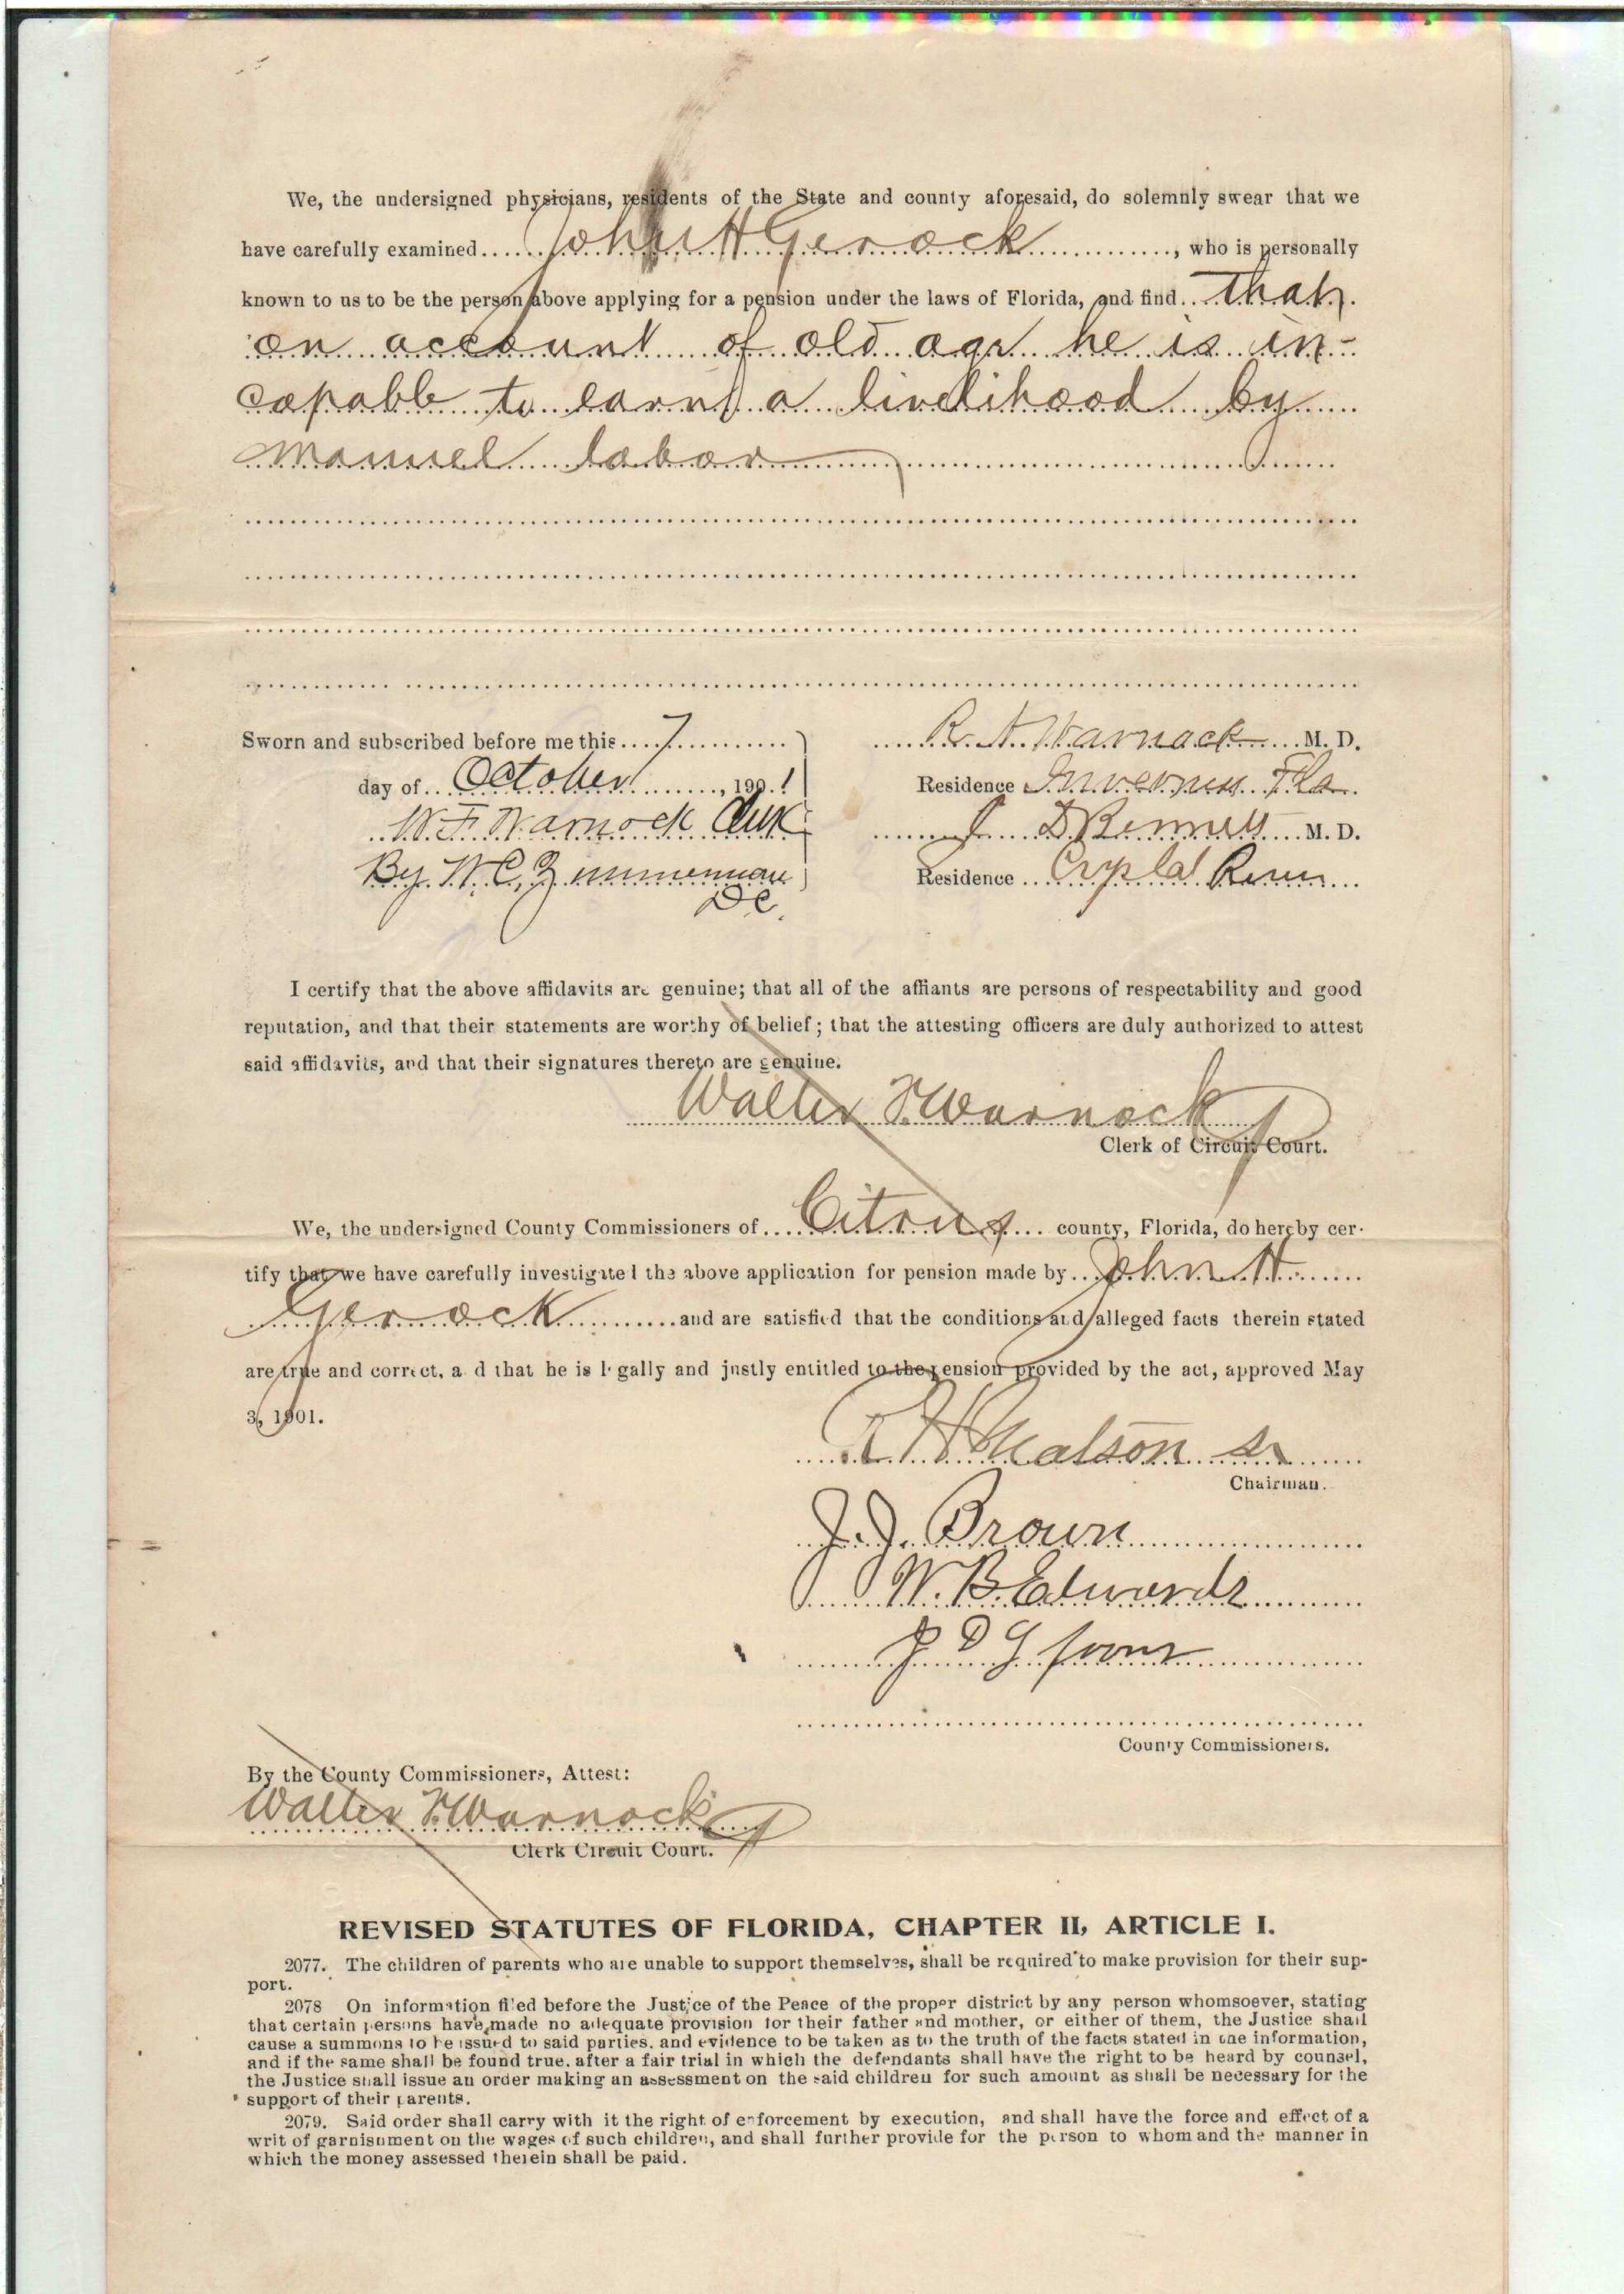 We, the undersigned physicians, residents of the State and county aforesaid, do solemnly swear that we
have carefully examined John H Gerock, who is personally
known to us to be the person above applying for a pension under the laws of Florida, and find that
on account of old age he is in-
capable to earn a livelihood by
manuel labor
Sworn and subscribed before me this 7
day of October, 1901
W. F. Warnock Clerk
By W. C. Zimmerman
DC.
R. A. Warnack M. D.
Residence Inverness Fla.
J D Bennett M. D.
Residence Crystal River
I certify that the above affidavits are genuine; that all of the affiants are persons of respectability and good
reputation, and that their statements are worthy of belief; that the attesting officers are duly authorized to attest
said affidavits, and that their signatures thereto are genuine.
Walter F. Warnock
Clerk of Circuit Court.
We, the undersigned County Commissioners of Citrus county, Florida, do hereby cer-
tify that we have carefully investigated the above application for pension made by John H
Gerock and are satisfied that the conditions and alleged facts therein stated
are true and correct, and that he is legally and justly entitled to the pension provided by the act, approved May
3, 1901.
Sr
Chairman.
J. J. Brown
W. B. Edwards
County Commissioners.
By the County Commissioners, Attest:
Walter F. Warnock
Clerk Circuit Court.
REVISED STATUTES OF FLORIDA, CHAPTER II, ARTICLE I.
2077. The children of parents who are unable to support themselves, shall be required to make provision for their sup-
port.
2078 On information filed before the Justice of the Peace of the proper district by any person whomsoever, stating
that certain persons have made no adequate provision for their father and mother, or either of them, the Justice shall
cause a summons to be issued to said parties, and evidence to be taken as to the truth of the facts stated in the information,
and if the same shall be found true, after a fair trial in which the defendants shall have the right to be heard by counsel,
the Justice shall issue an order making an assessment on the said children for such amount as shall be necessary for the
support of their parents.
2079. Said order shall carry with it the right of enforcement by execution, and shall have the force and effect of a
writ of garnishment on the wages of such children, and shall further provide for the person to whom and the manner in
which the money assessed therein shall be paid.